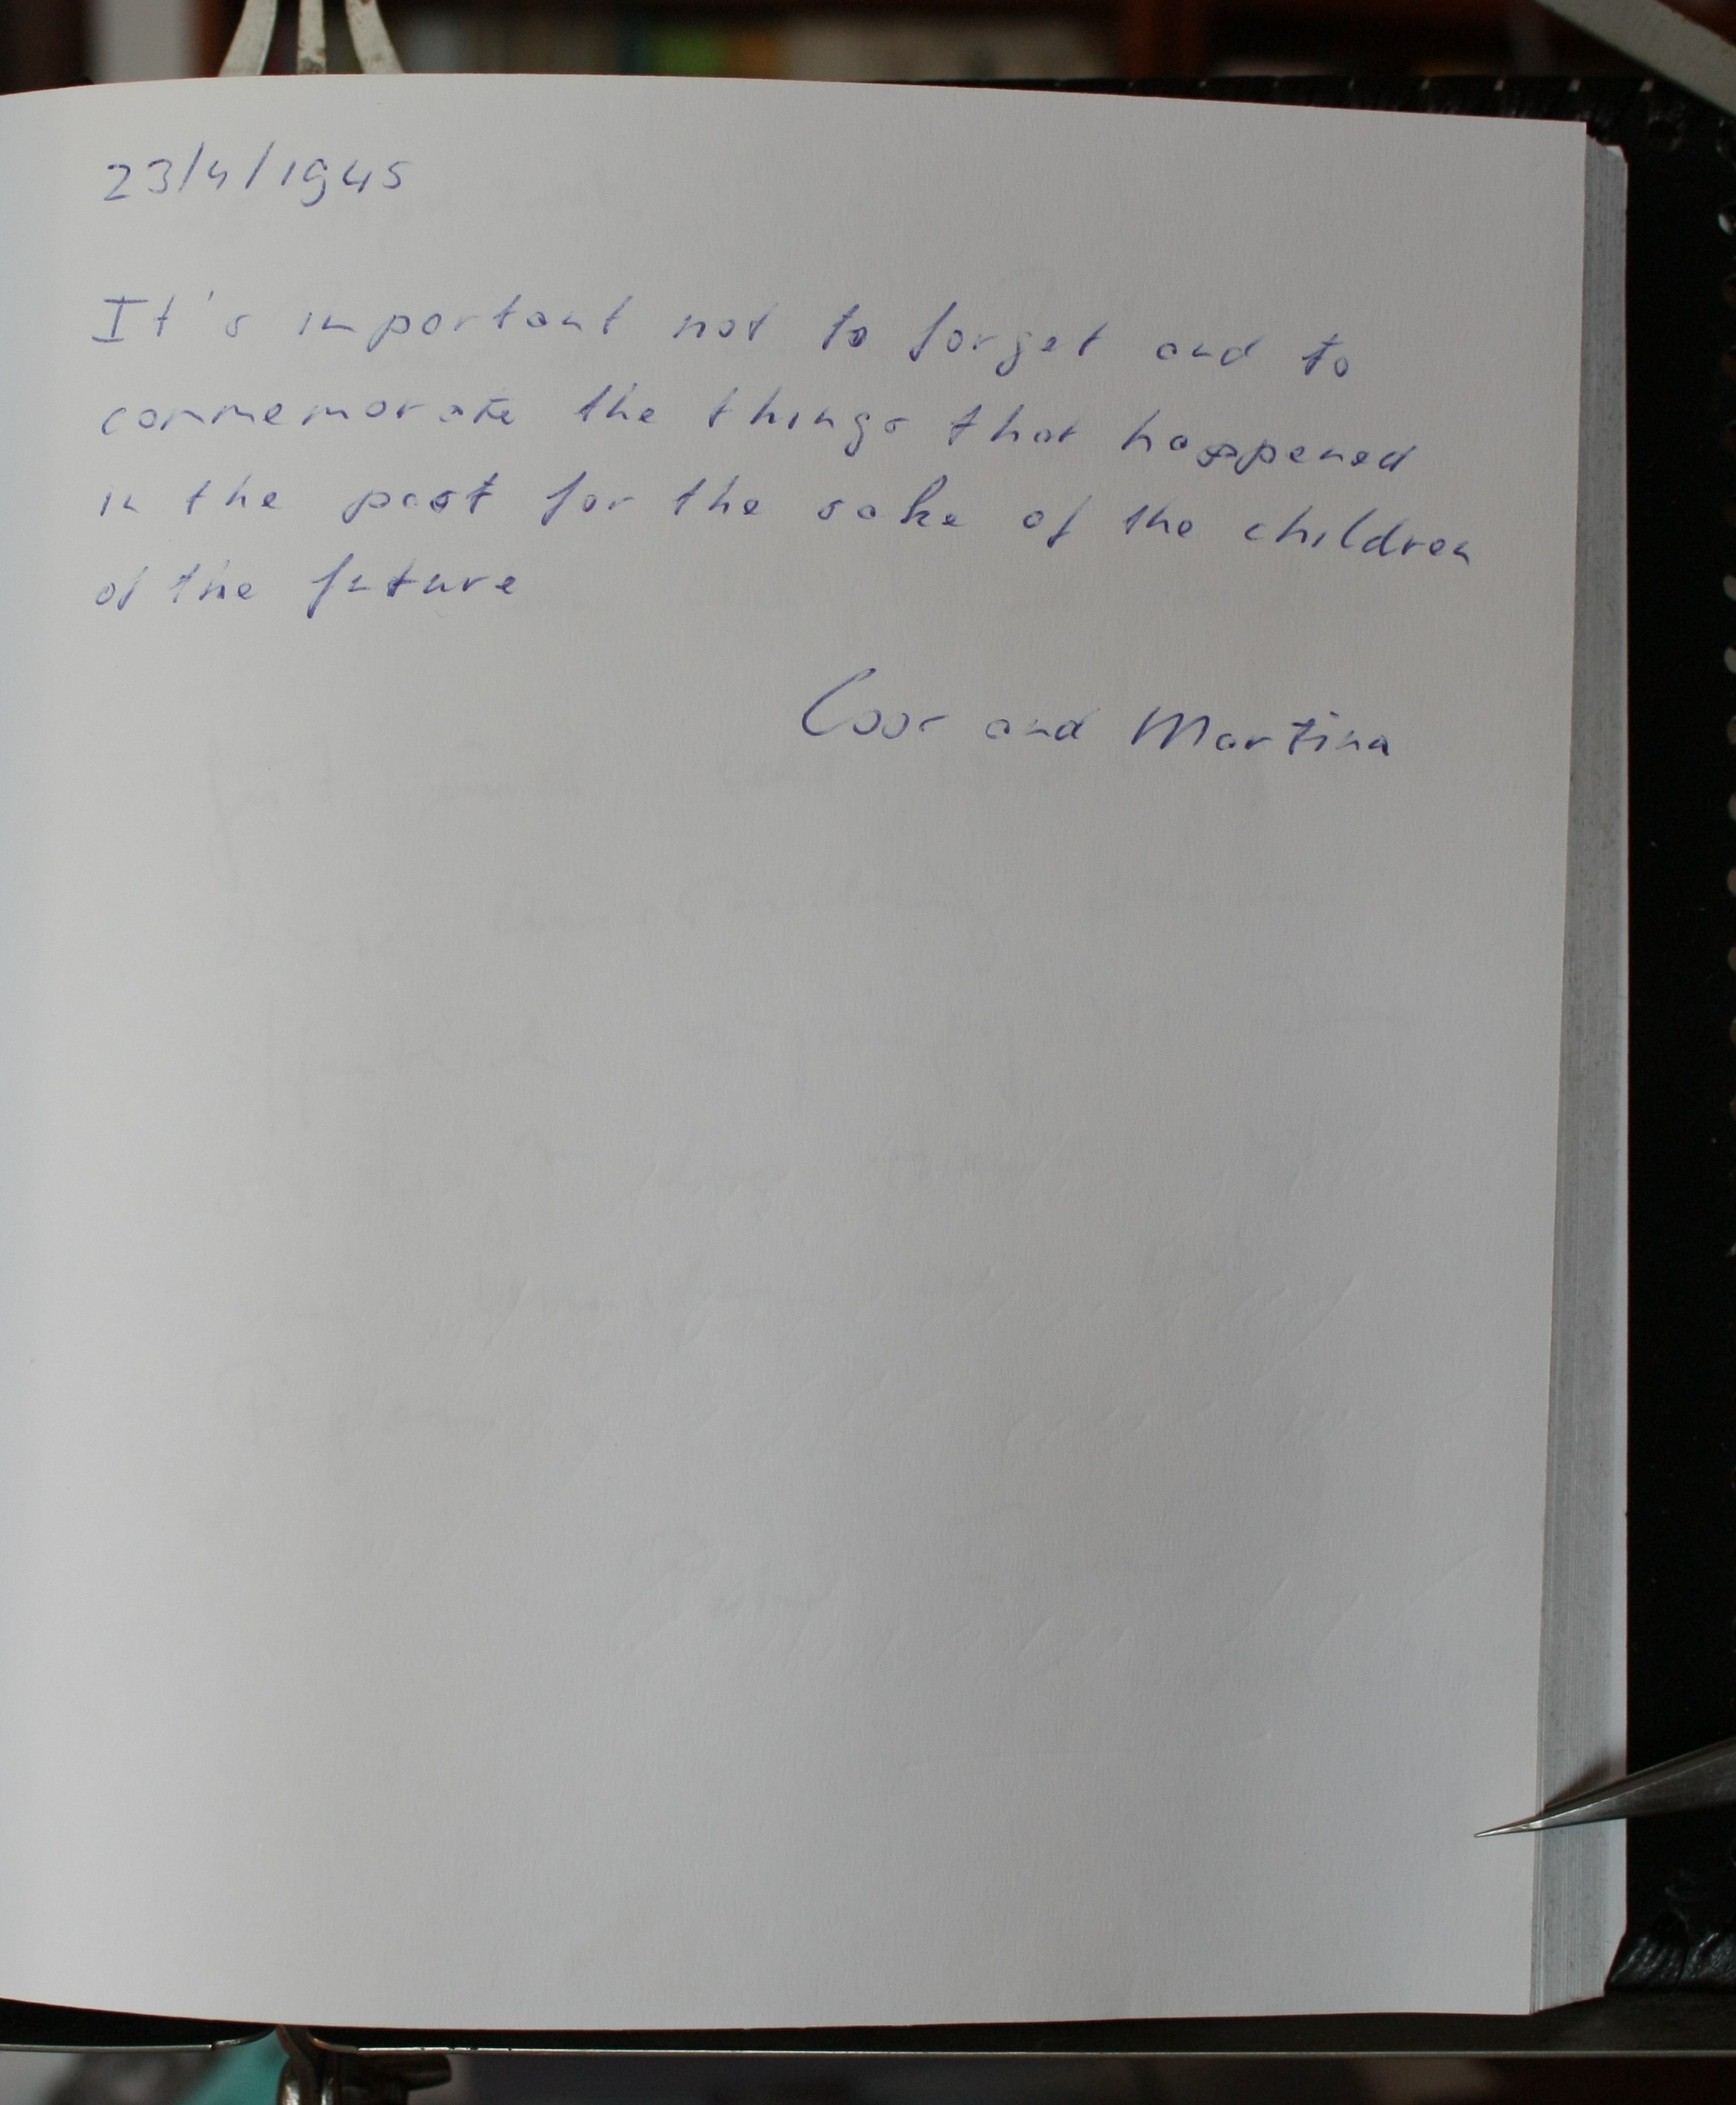 23/4/1945
It's important not to forget and to
commemorate the things that happened
in the past for the sake of the children
of the future
and Martina